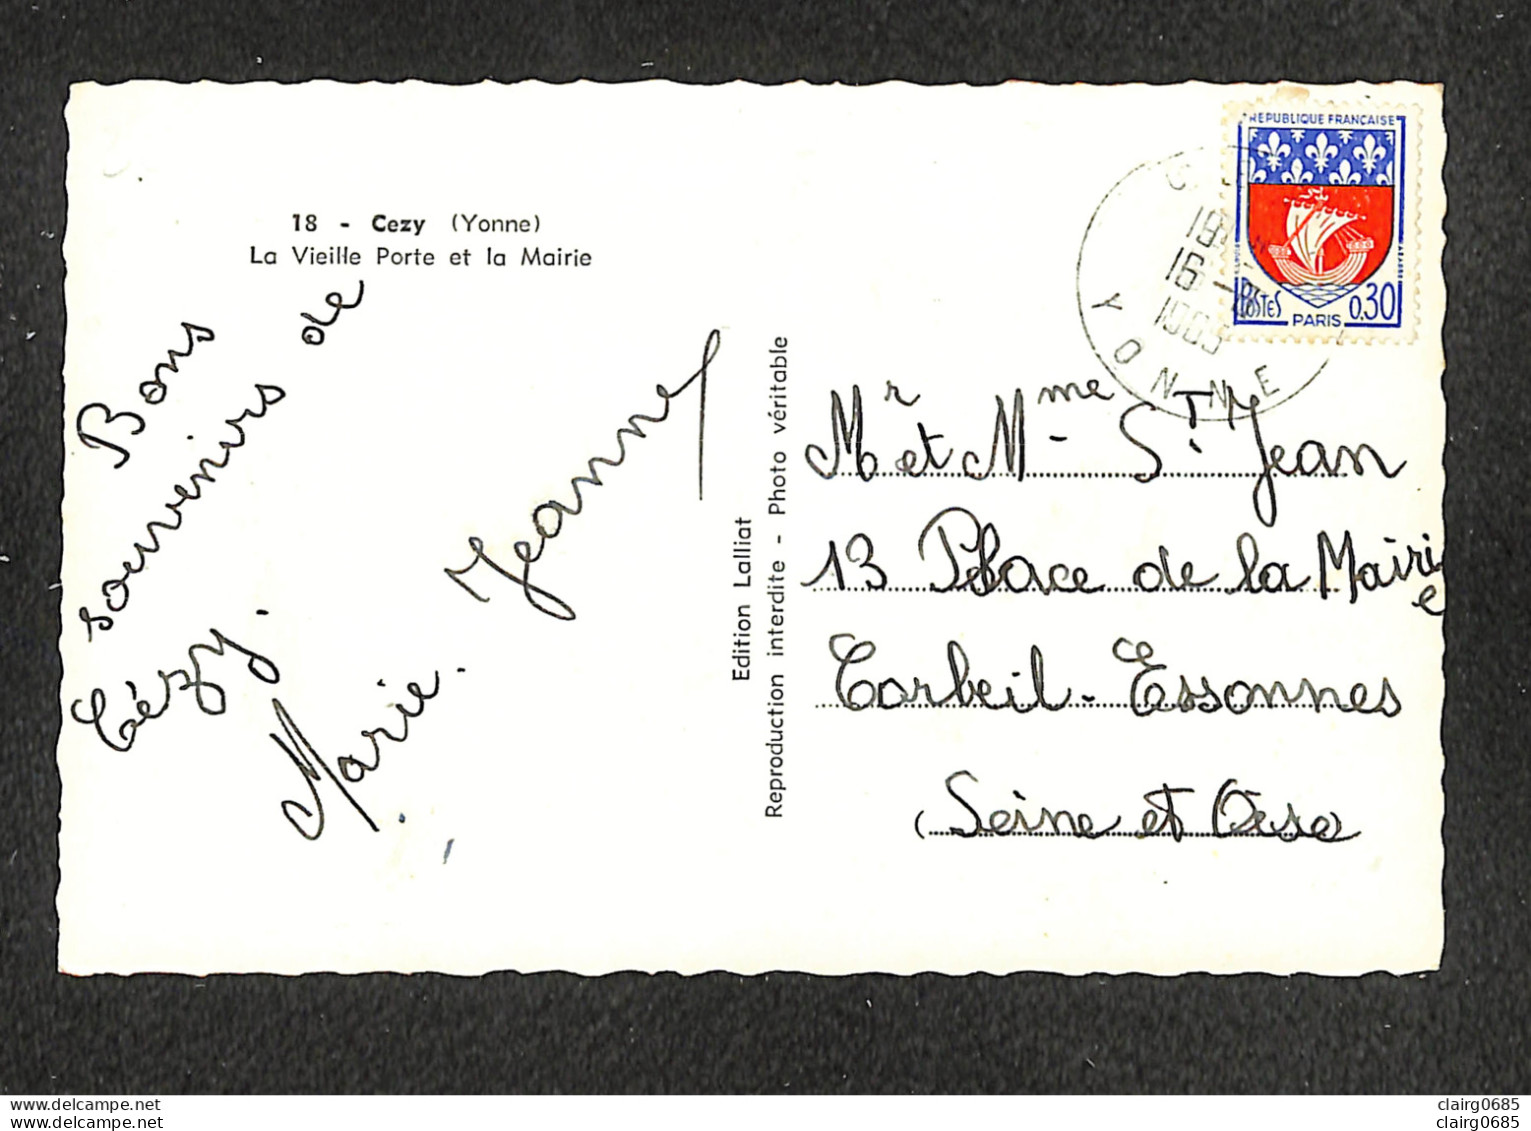 18 - Cezy (Yonne)
La Vieille Porte et la Mairie
Bons
souvenirs de
Cézy.
Marie-Jeanne
Edition Lalliat
Reproduction interdite - Photo véritable
REPUBLIQUE FRANÇAISE
POSTES
0,30
PARIS
16
YONNE
Mr et Mme St Jean
13 Place de la Mairie
Corbeil-Essonnes
(Seine et Oise
clairg0685
clairg0685
www.delcampe.net
www.delcampe.net